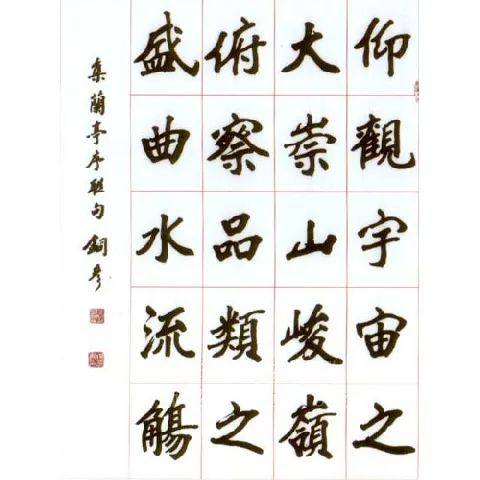 仰觀宇宙之
大崇山峻嶺
俯察品類之
盛曲水流觴
集蘭亭序联句